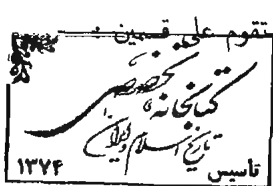 تقوم علي قسمين :
کتابخانه تخصصی
تاریخ اسلام و ایران
تاسیس ۱۳۷۴